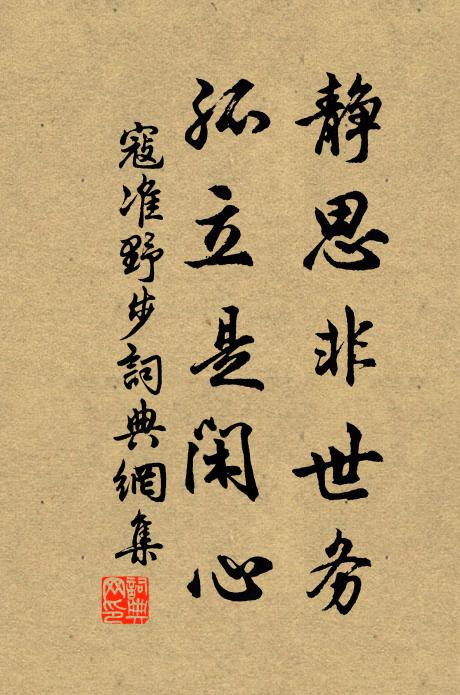 静思非世务
孤立是闲心
寇准野步詞典網集
詞典网印